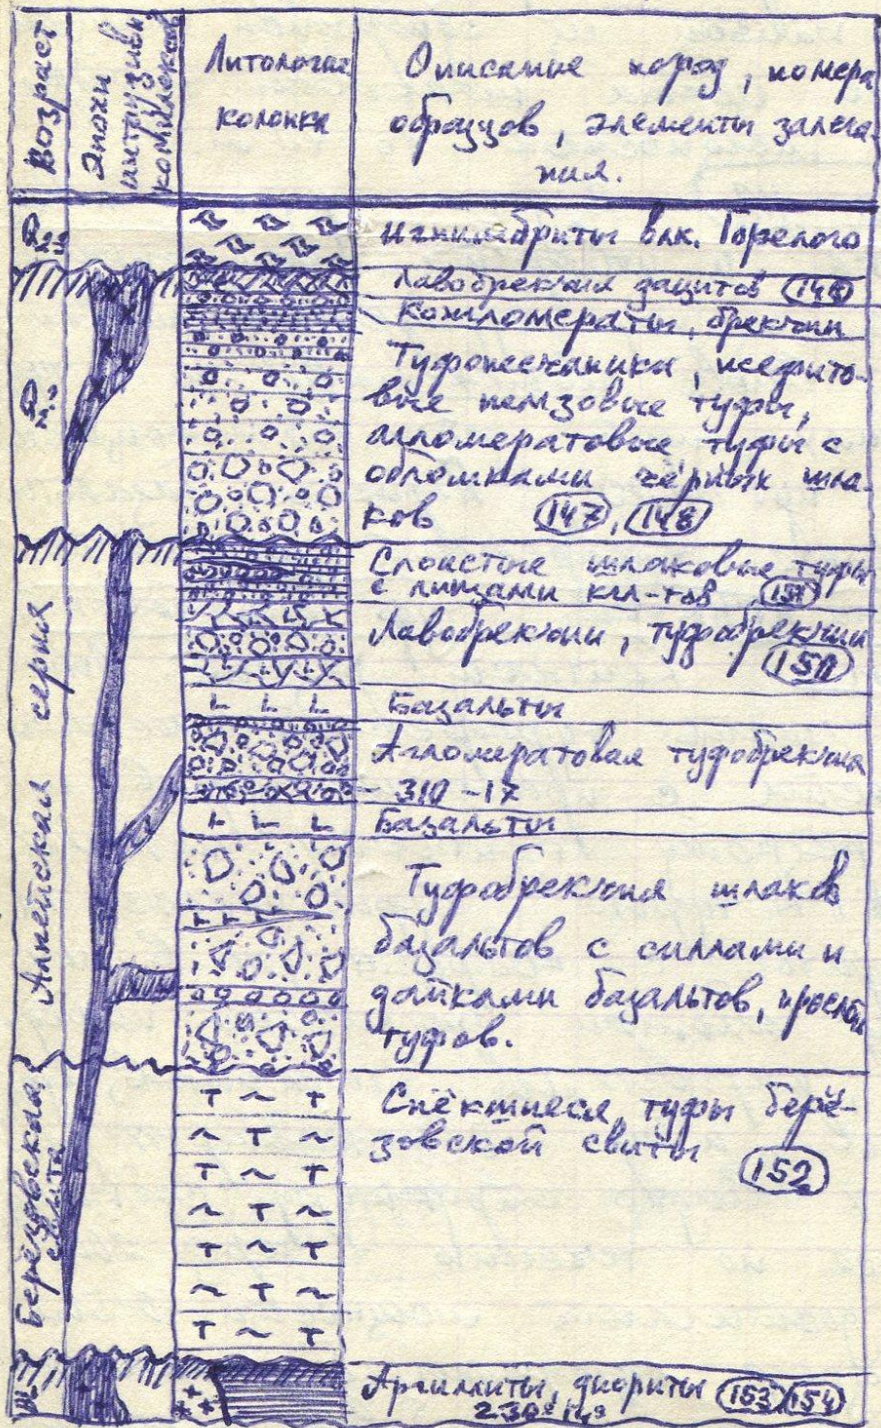 Возраст
Эпохи
интрузивн.
комплексов
Литологич.
колонка
Описание пород, номера
образцов, элементы залега-
ния.
Игнимбриты влк. Горелого
Лавобрекчия дацитов 146
Конгломераты, брекчии
Туфопесчаники, псефито-
вые пемзовые туфы,
агломератовые туфы с
обломками чёрных шла-
ков 147, 148
Слоистые шлаковые туфы
с линзами
Лавобрекчии, туфобрекчии
150
Базальты
Агломератовая туфобрекчия
310-17
Базальты
Алнейская серия
Туфобрекчия шлаков
базальтов с силлами и
дайками базальтов, прослои
туфов.
Берёзовская
свита
Спёкшиеся туфы берё-
зовской свиты
152
Аргиллиты, диориты 153 154
230° 14°